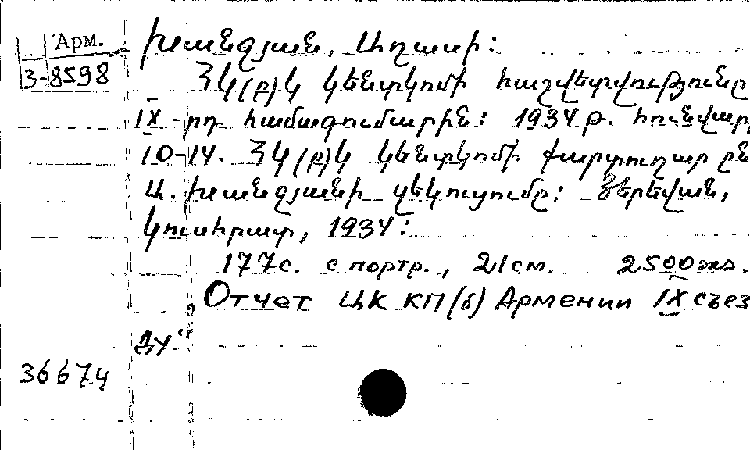 Арм.
3-8598
Խանջյան, Աղասի:
ՀԿ(բ)Կ Կենտկոմի հաշվետվությունը
IX-րդ համագումարին: 1934թ. հունվար
10-14. ՀԿ(բ)Կ Կենտկոմի քարտուղար ըն
Ա. Խանջյանի զեկուցումը: Յերեվան,
Կուսհրատ, 1934:
177с. с портр., 21см. 2500экз.
Отчет ЦК КП(б) Армении IX съез
36674